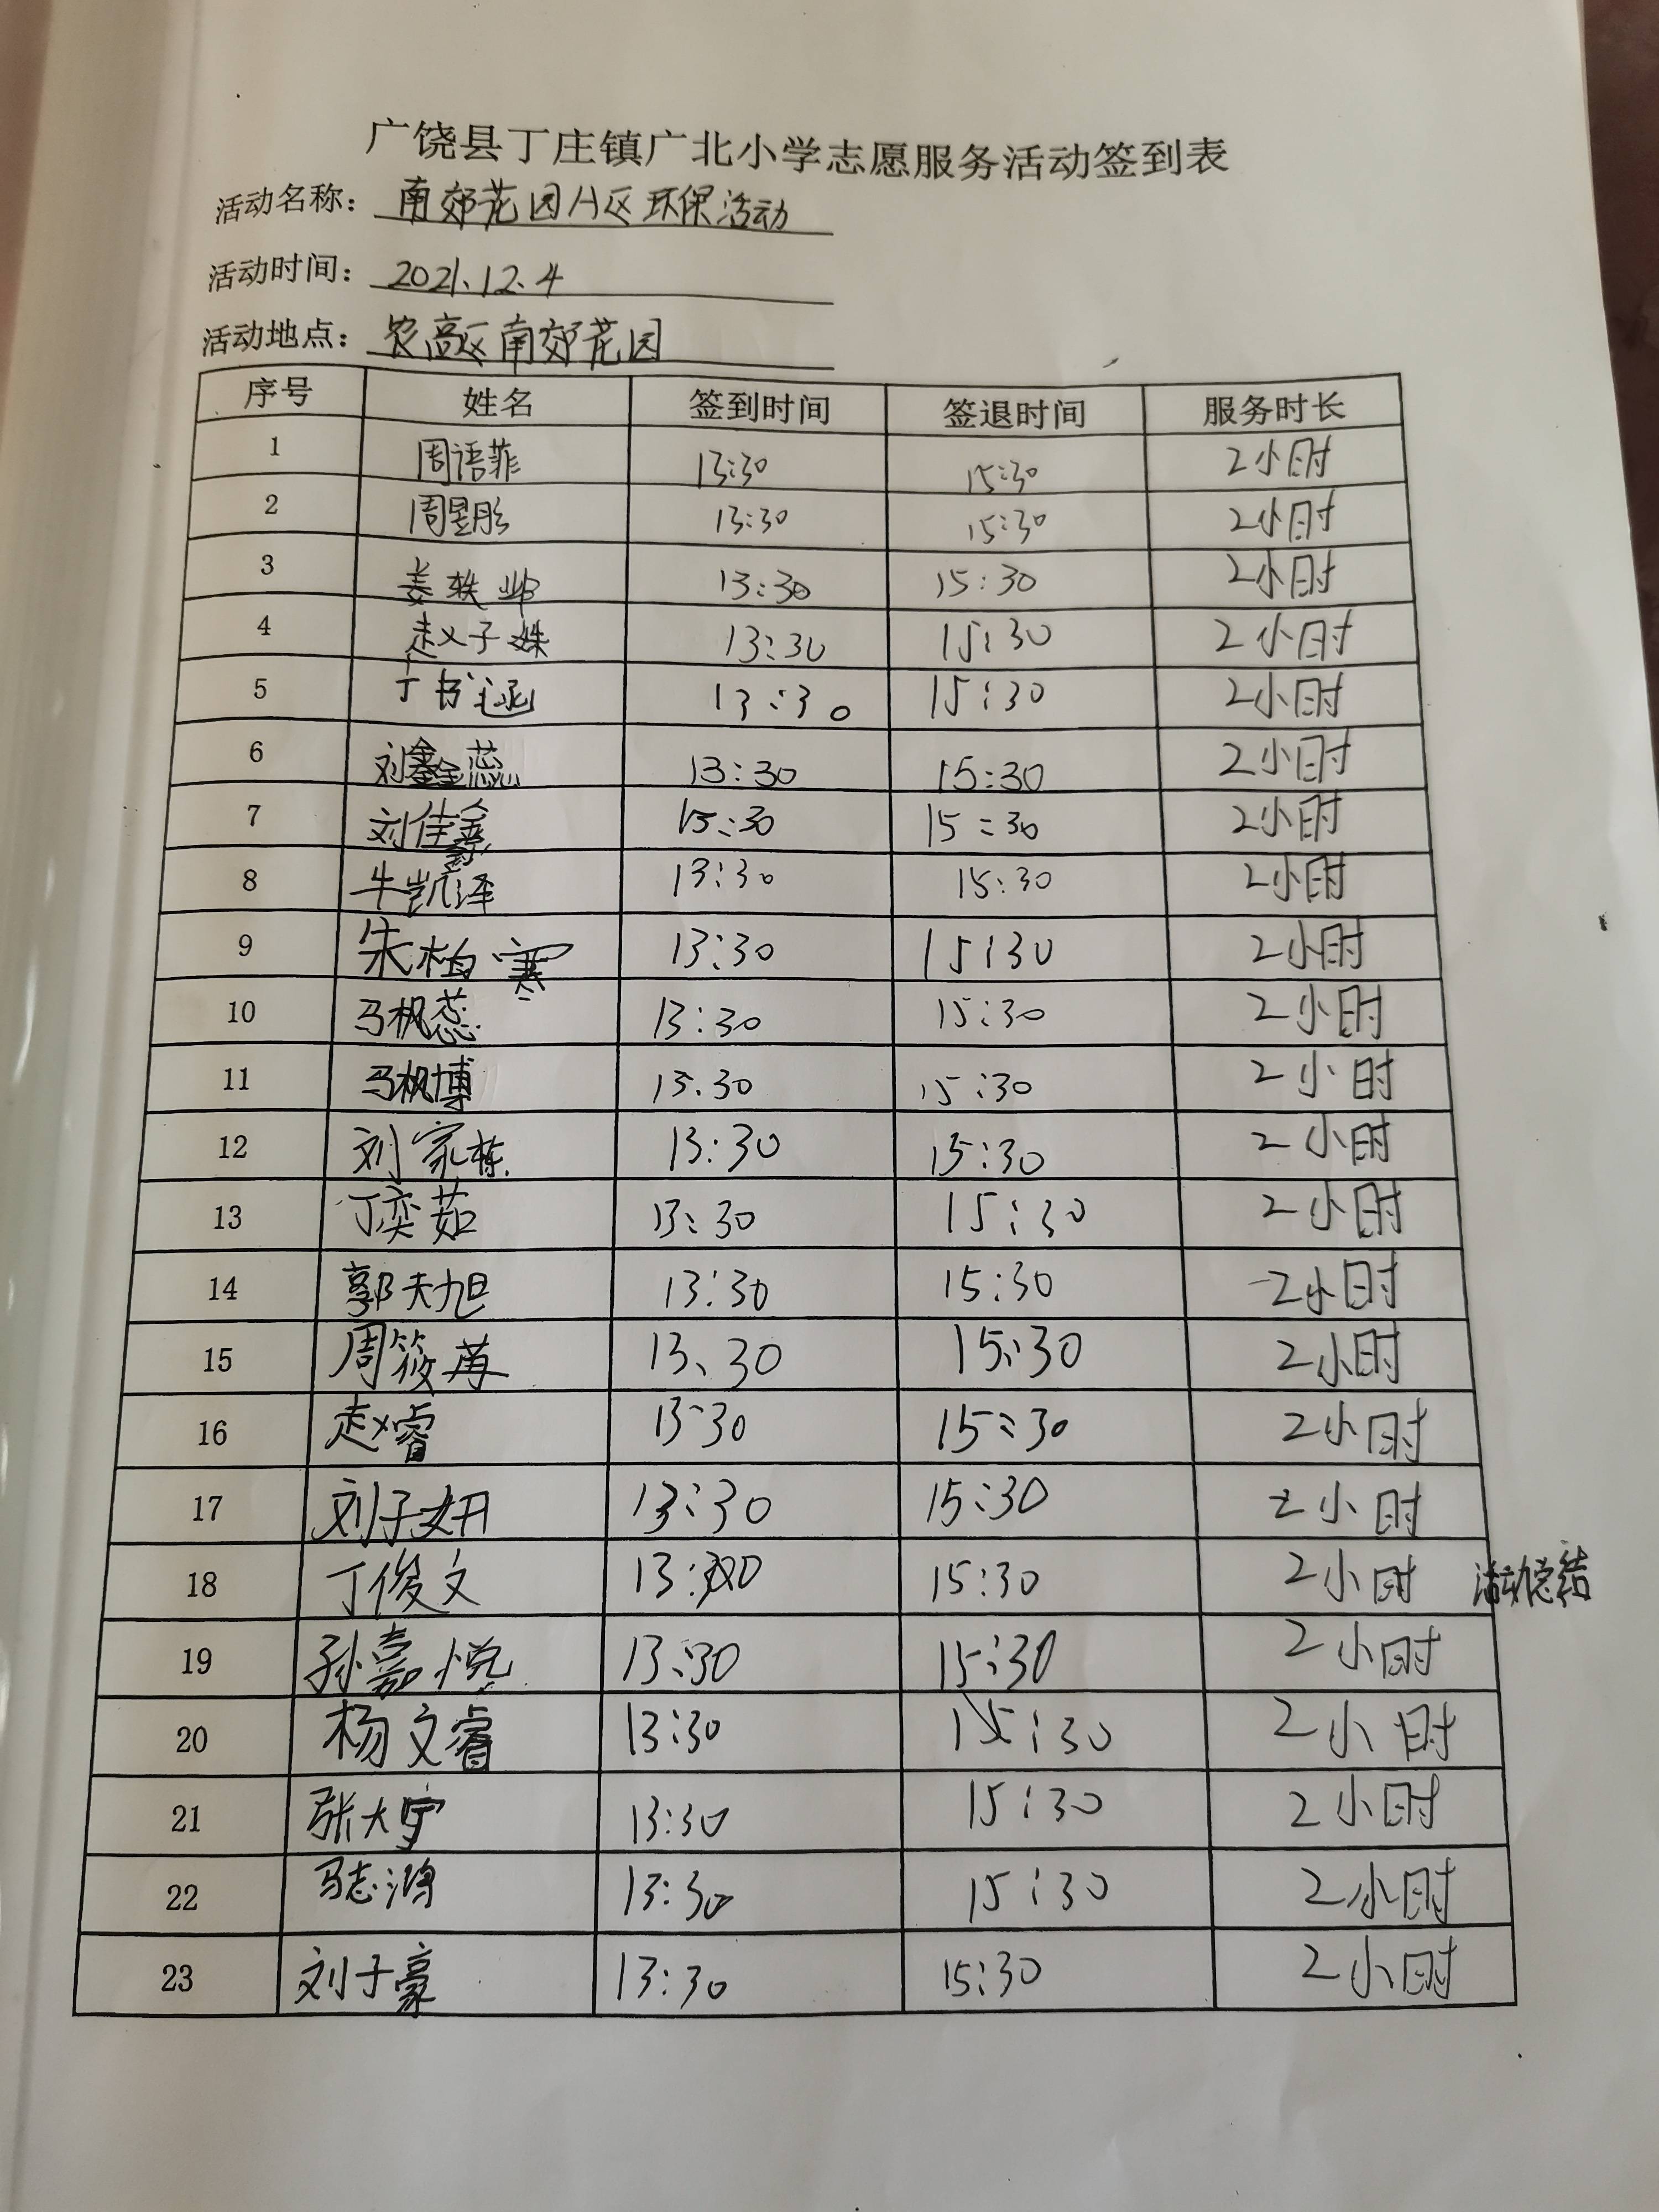 广饶县丁庄镇广北小学志愿服务活动签到表
活动名称：南郊花园片区环保活动
活动时间：2021.12.4
活动地点：农高区南郊花园
序号 姓名 签到时间 签退时间 服务时长
1 周语菲 13:30 15:30 2小时
2 周昱彤 13:30 15:30 2小时
3 姜轶 13:30 15:30 2小时
4 赵子姝 13:30 15:30 2小时
5 丁书涵 13:30 15:30 2小时
6 刘鑫蕊 13:30 15:30 2小时
7 刘佳鑫 15:30 15:30 2小时
8 牛凯泽 13:30 15:30 2小时
9 朱柏寒 13:30 15:30 2小时
10 马枫蕊 13:30 15:30 2小时
11 马枫博 13:30 15:30 2小时
12 刘家栋 13:30 15:30 2小时
13 丁奕茹 13:30 15:30 2小时
14 郭天旭 13:30 15:30 2小时
15 周筱苒 13、30 15:30 2小时
16 赵睿 13:30 15:30 2小时
17 刘子妍 13:30 15:30 2小时
18 丁俊文 13:30 15:30 2小时 活动总结
19 孙嘉悦 13:30 15:30 2小时
20 杨文睿 13:30 15:30 2小时
21 张大宇 13:30 15:30 2小时
22 马志鸿 13:30 15:30 2小时
23 刘子豪 13:30 15:30 2小时